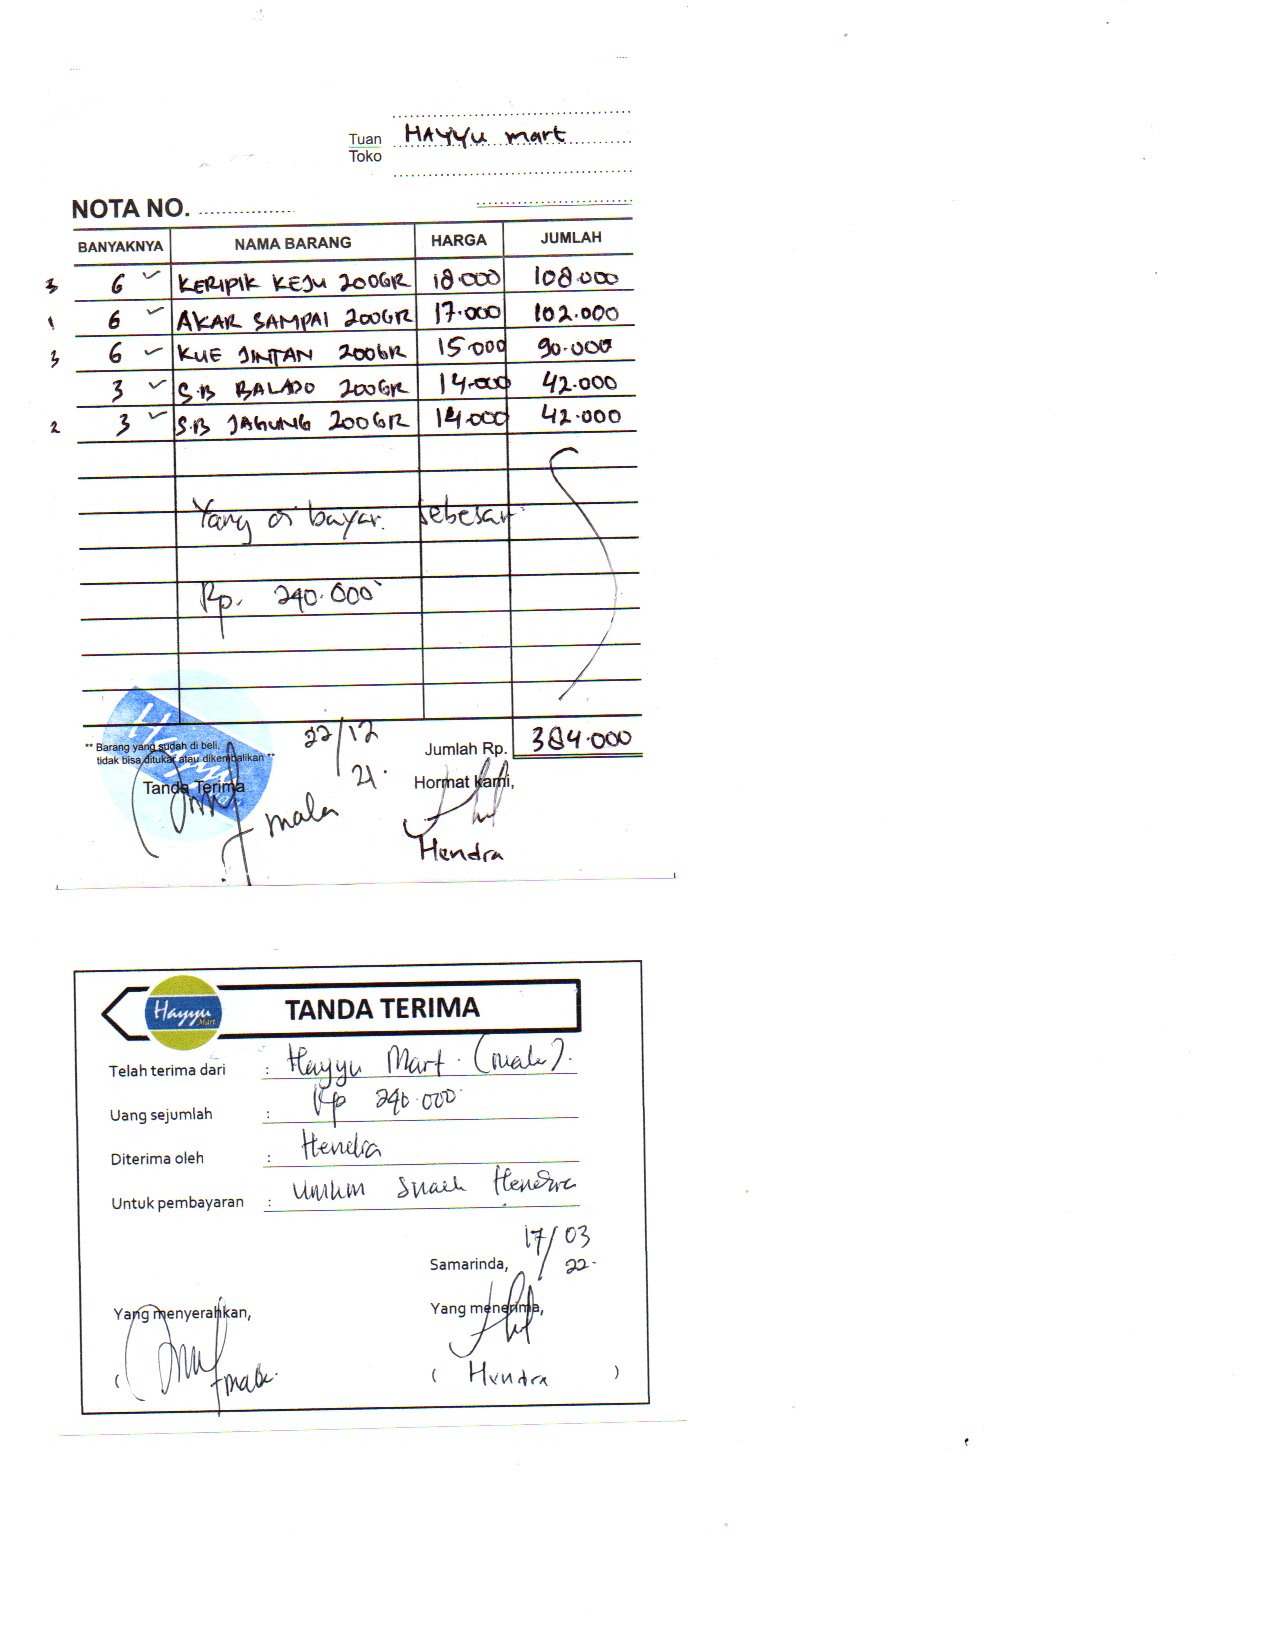 Tuan HAYYU mart
Toko
NOTA NO.
BANYAKNYA NAMA BARANG HARGA JUMLAH
3 6 KERIPIK KEJU 200GR 18.000 108.000
1 6 AKAR SAMPAI 200GR 17.000 102.000
3 6 KUE JINTAN 200GR 15.000 90.000
3 S.B BALADO 200GR 14.000 42.000
2 3 S.B JAGUNG 200GR 14.000 42.000
Yang di bayar sebesar
Rp. 240.000
** Barang yang sudah di beli,
tidak bisa ditukar atau dikembalikan **
22/12
21.
Jumlah Rp. 384.000
Tanda Terima Hormat kami,
mala
Hendra
Hayyu Mart
TANDA TERIMA
Telah terima dari : Hayyu Mart. (mala).
Uang sejumlah : Rp 240.000
Diterima oleh : Hendra
Untuk pembayaran : Umkm Snack Hendra
17/03
Samarinda, 22.
Yang menyerahkan, Yang menerima,
( mala. ( Hendra )